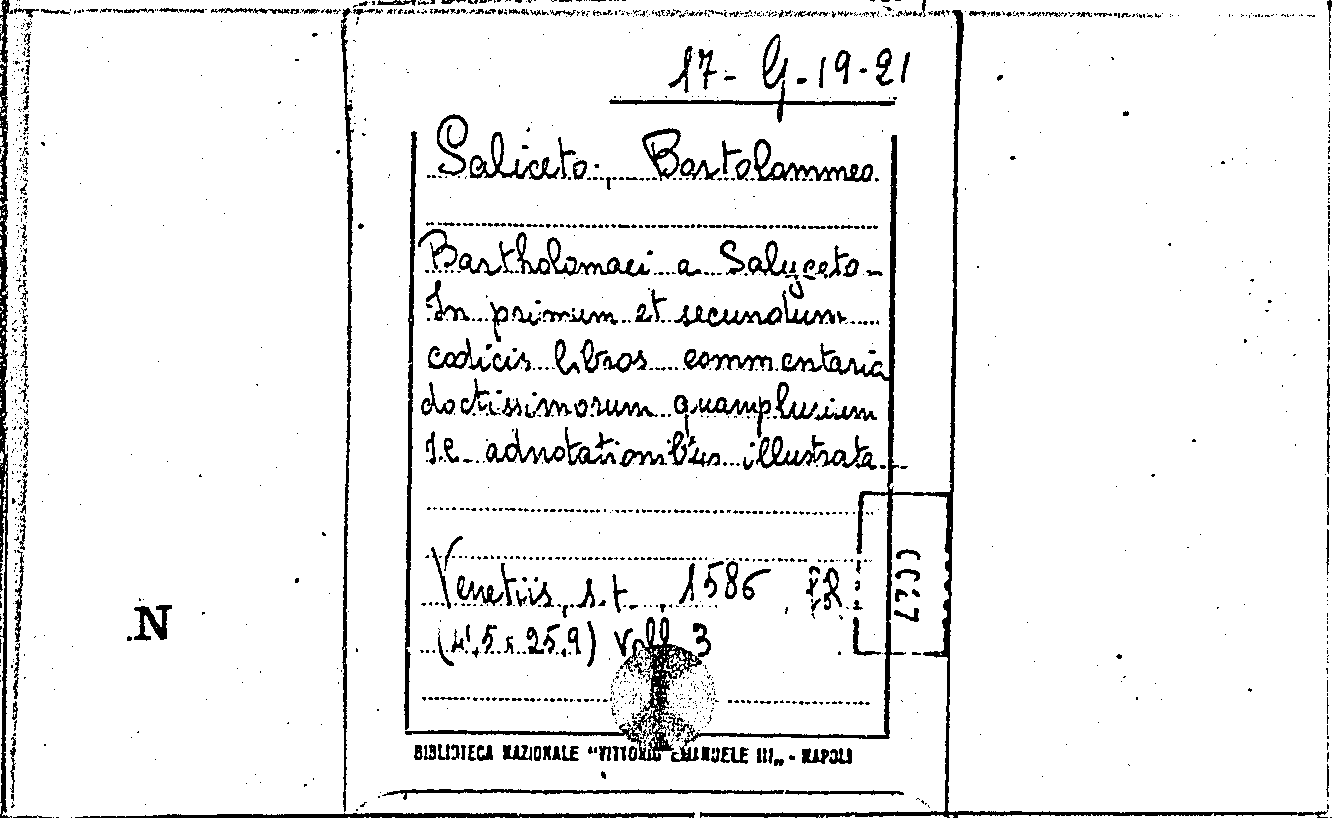 17- G-19-21
Saliceto, Bartolommeo
Bartholomaei a Salyceto-
In primum et secundum
codicis libros commentaria
doctissimorum quamplurium
I.C. adnotationibus illustrata
Venetiis, s.t., 1586
vol. 3
N
BIBLIOTECA NAZIONALE "VITTORIO EMANUELE III„ - NAPOLI